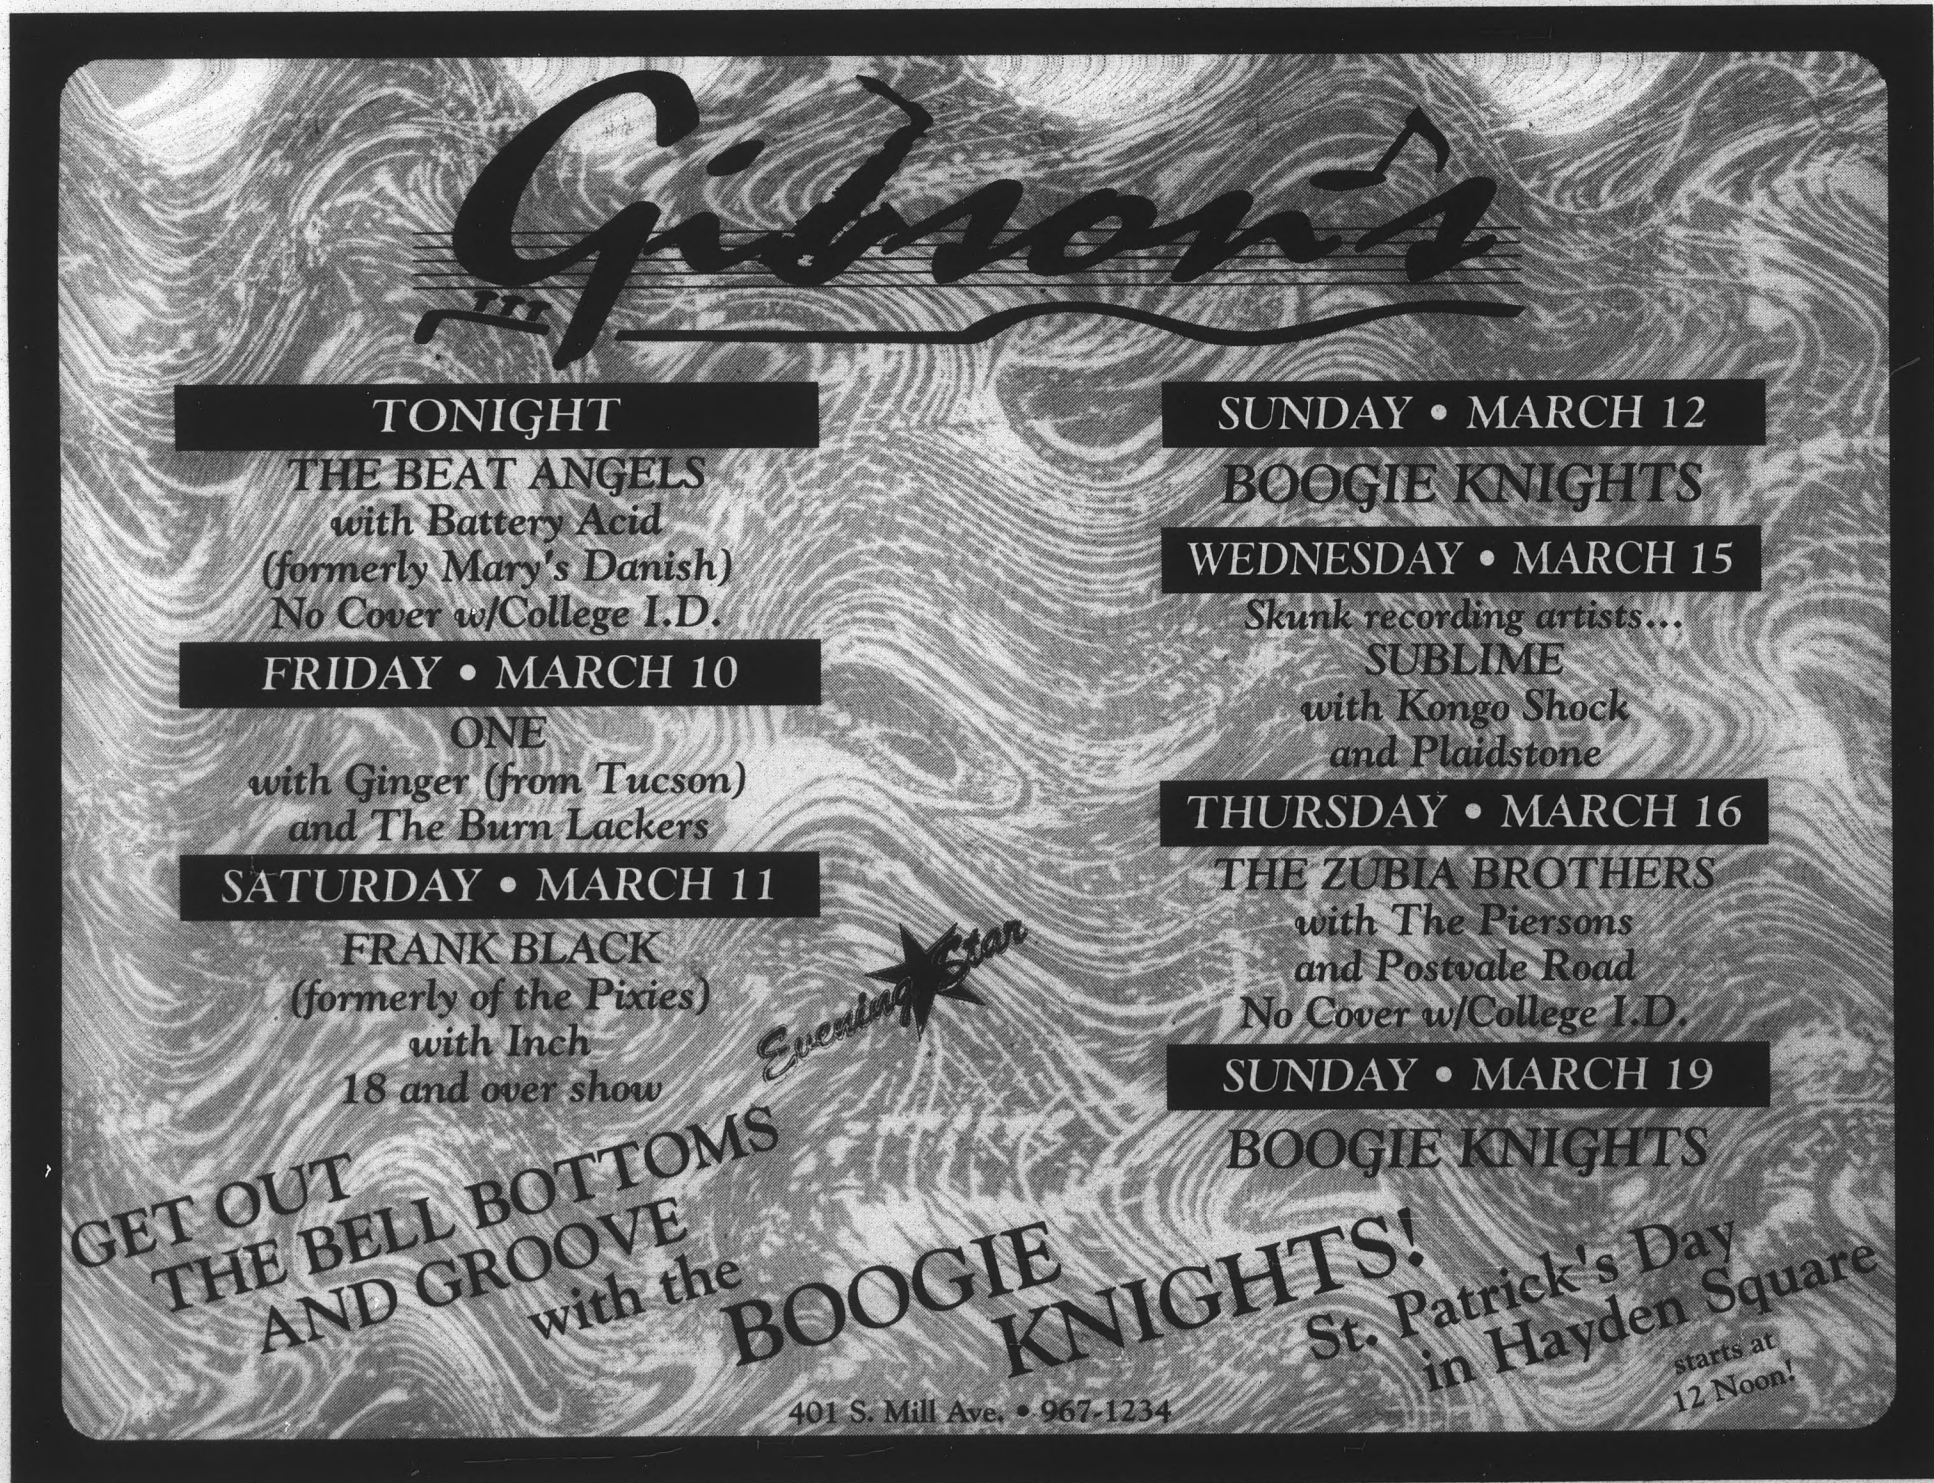 Gibson's
TONIGHT
THE BEAT ANGELS
with Battery Acid
(formerly Mary's Danish)
No Cover w/College I.D.
FRIDAY • MARCH 10
ONE
with Ginger (from Tucson)
and The Burn Lackers
SATURDAY • MARCH 11
FRANK BLACK
(formerly of the Pixies)
with Inch
18 and over show
Evening Star
SUNDAY • MARCH 12
BOOGIE KNIGHTS
WEDNESDAY • MARCH 15
Skunk recording artists...
SUBLIME
with Kongo Shock
and Plaidstone
THURSDAY • MARCH 16
THE ZUBIA BROTHERS
with The Piersons
and Postvale Road
No Cover w/College I.D.
SUNDAY • MARCH 19
BOOGIE KNIGHTS
GET OUT
THE BELL BOTTOMS
AND GROOVE
with the
BOOGIE
KNIGHTS!
St. Patrick's Day
in Hayden Square
starts at
12 Noon!
401 S. Mill Ave. • 967-1234